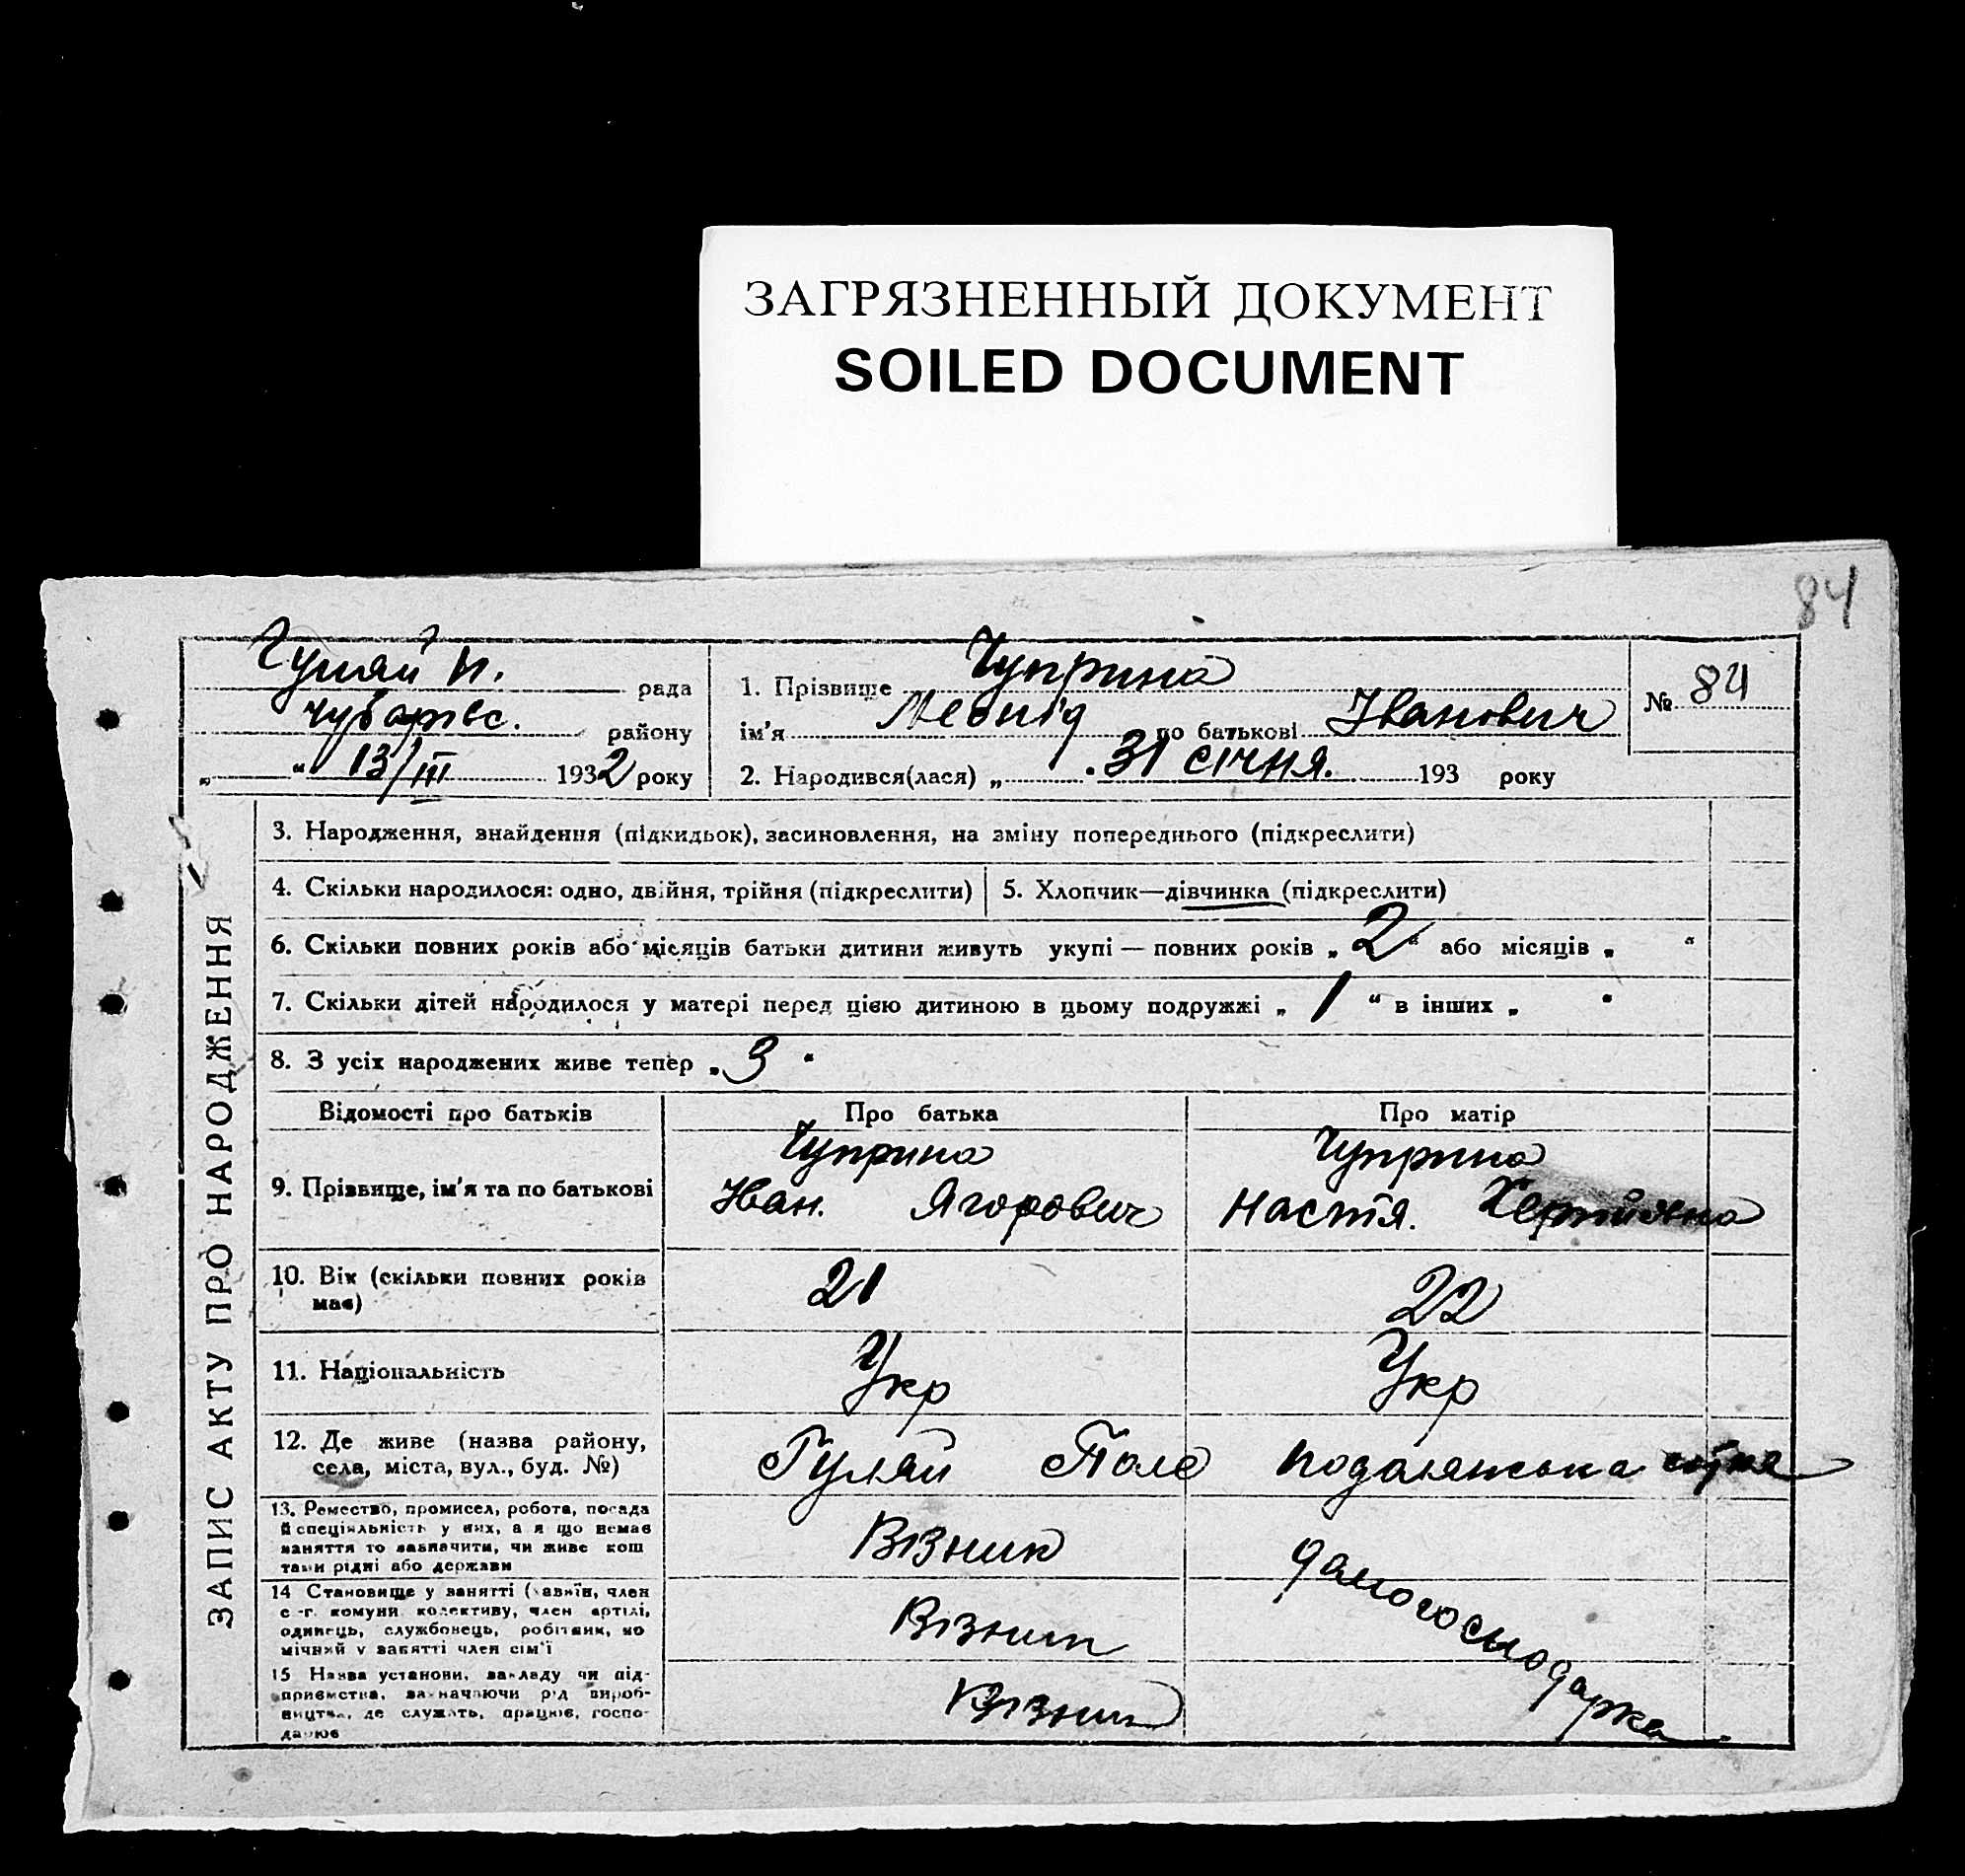 ЗАГРЯЗНЕННЫЙ ДОКУМЕНТ
SOILED DOCUMENT
84
Гуляй П. рада
чубарівс. району
„ “ 13/III 1932 року
1. Прізвище Чуприна
ім'я Леонід по батькові Іванович
2. Народився(лася) „ 31 січня. 193 року
№ 84
ЗАПИС АКТУ ПРО НАРОДЖЕННЯ
3. Народження, знайдення (підкидьок), засиновлення, на зміну попереднього (підкреслити)
4. Скільки народилося: одно, двійня, трійня (підкреслити)
5. Хлопчик—дівчинка (підкреслити)
6. Скільки повних років або місяців батьки дитини живуть укупі — повних років „ 2 “ або місяців „ “
7. Скільки дітей народилося у матері перед цією дитиною в цьому подружжі „ 1 “ в інших „ “
8. З усіх народжених живе тепер „ 3 “
Відомості про батьків
Про батька
Про матір
9. Прізвище, ім'я та по батькові
Чуприна
Іван. Ягорович
Чуприна
Настя.
10. Вік (скільки повних років
має)
21
22
11. Національність
Укр
Укр
12. Де живе (назва району,
села, міста, вул., буд. №)
Гуляй Поле
подолянська
13. Ремество, промисел, робота, посада
й спеціяльність у них, а я що немає
заняття то зазначити, чи живе кош
тами рідні або держави
Візник
дамогосподарка.
14 Становище у занятті (хазяїн, член
с.-г. комуни колективу, член артілі,
одинець, службовець, робітник, по
мічний у занятті член сім'ї
Візник
15 Назва установи, закладу чи під-
приємства, зазначаючи рід вироб-
ництва, де служить, працює, госпо-
дарює
Візник